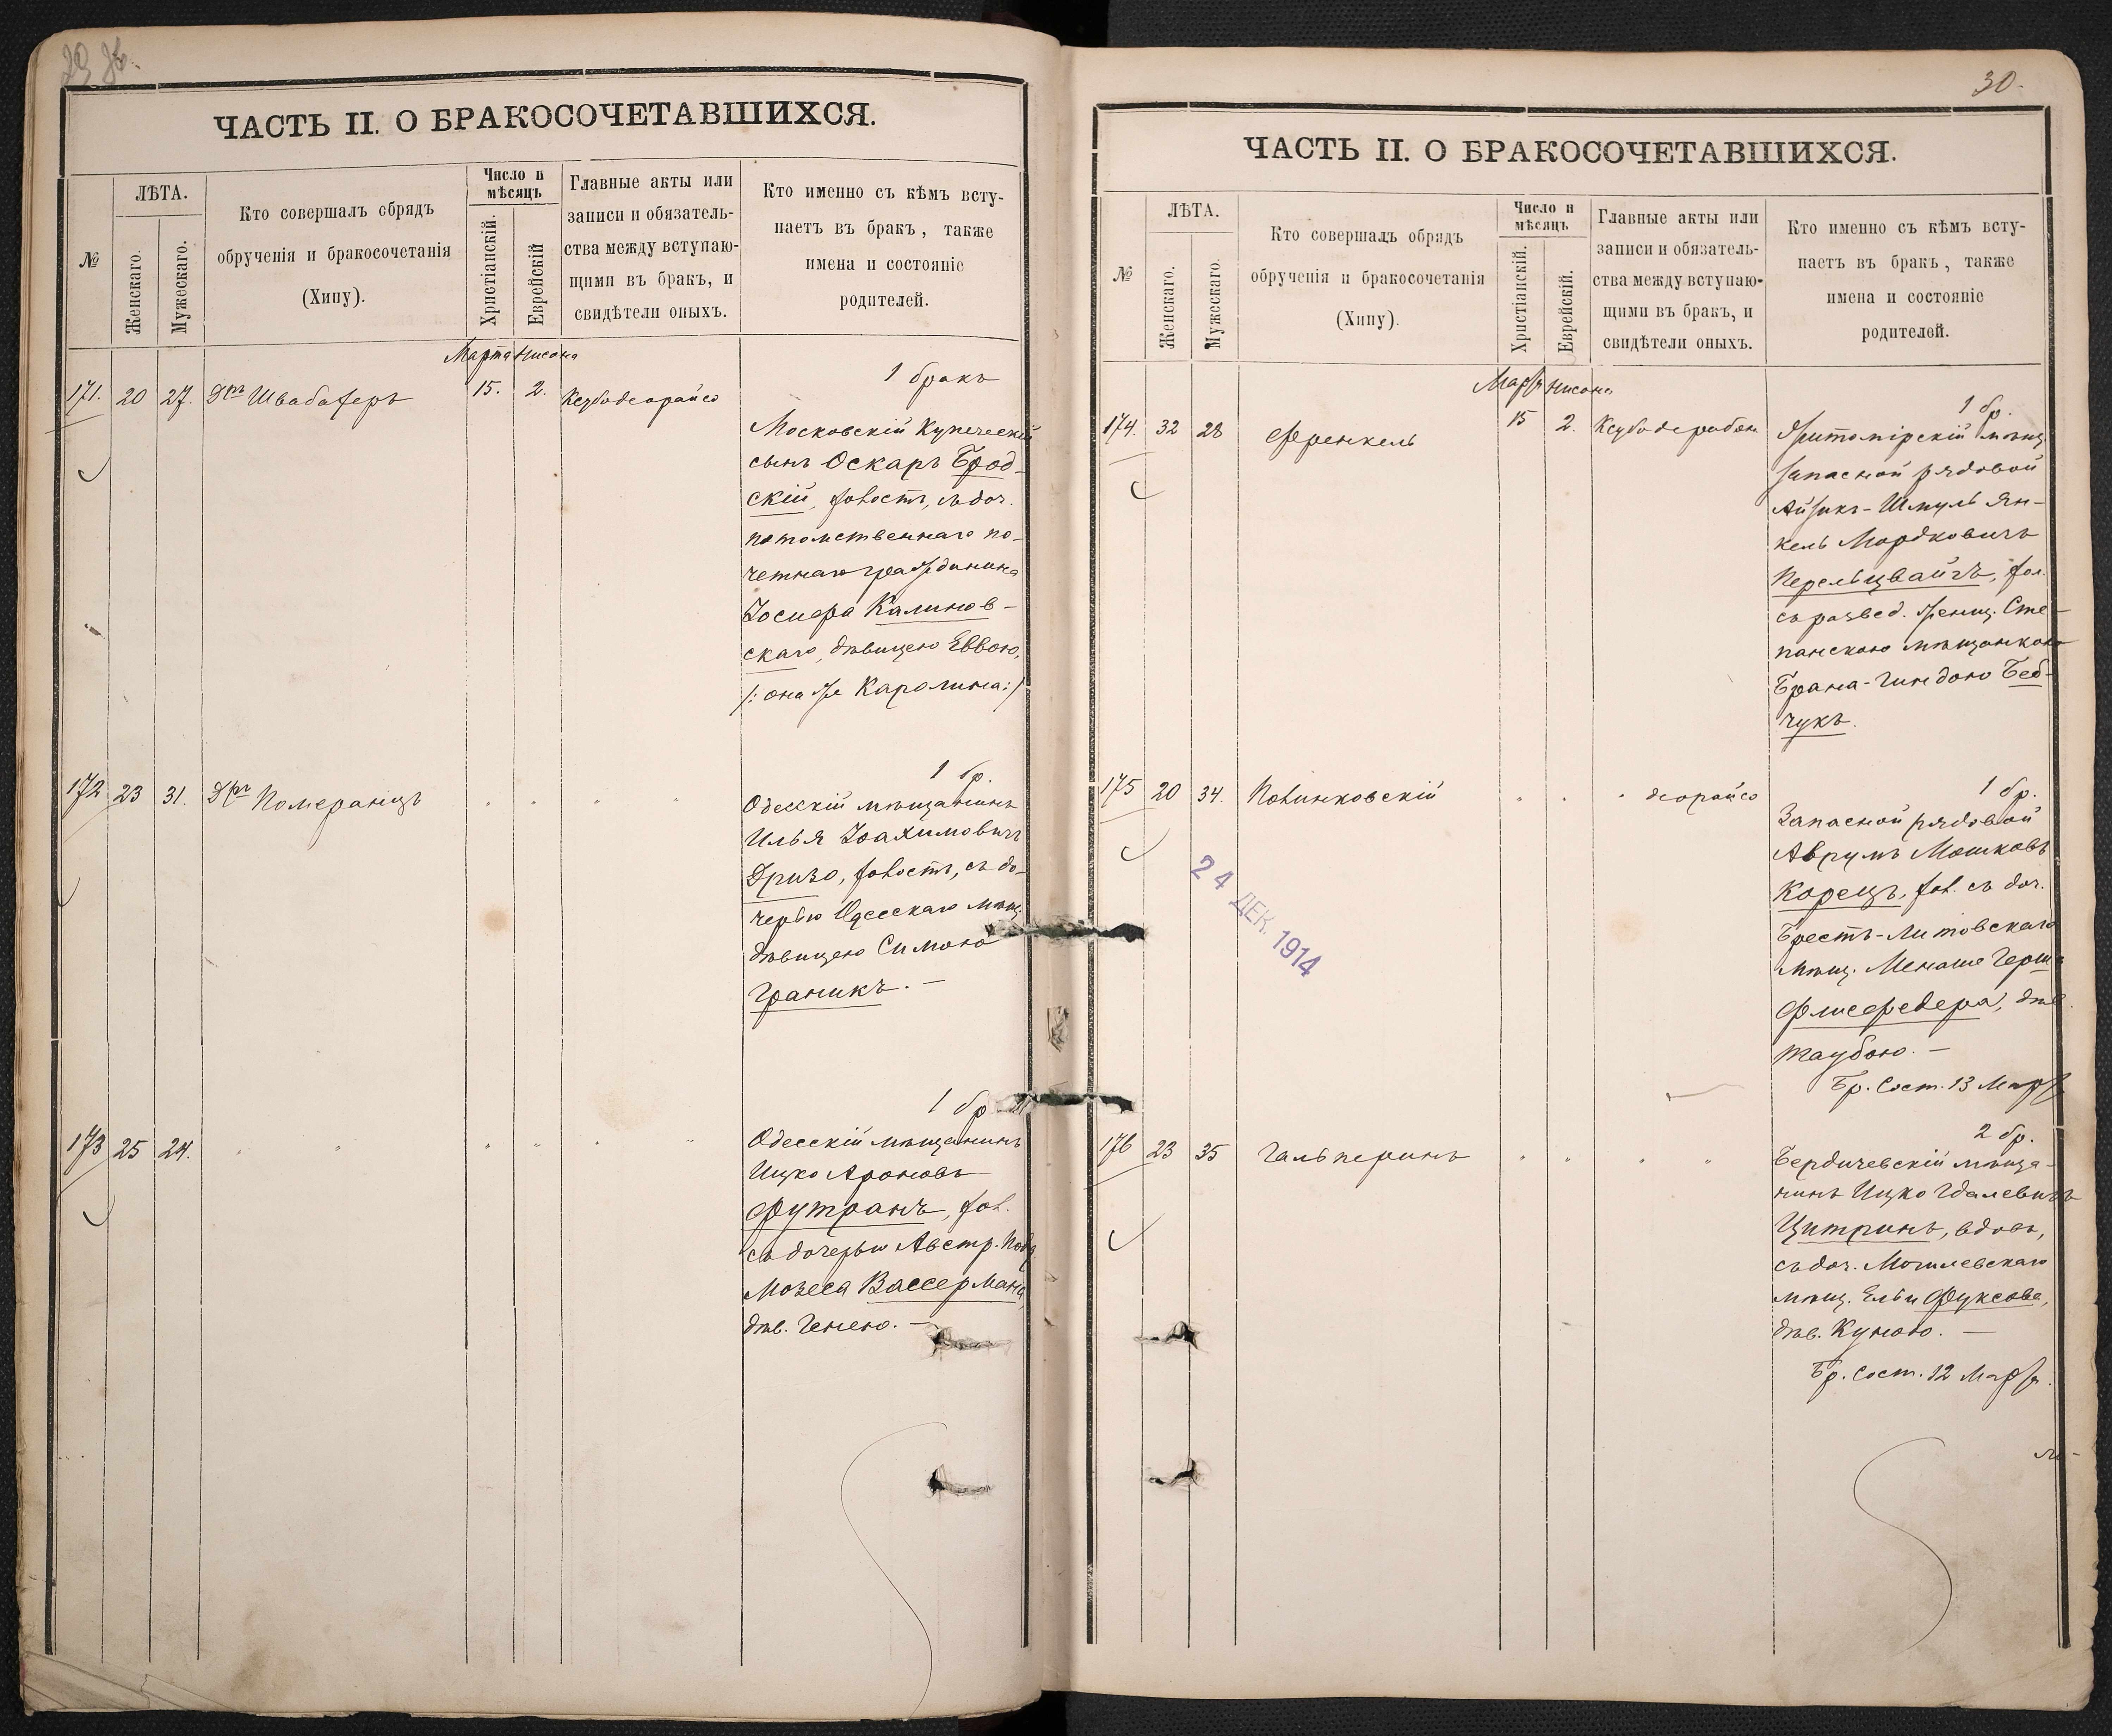 ЧАСТЬ II. О БРАКОСОЧЕТАВШИХСЯ.
№
ЛѢТА.
Женскаго.
Мужескаго.
Кто совершалъ обрядъ
обрученія и бракосочетанія
(Хипу).
Число и
мѣсяцъ
Христіанскій.
Еврейскій
Главные акты или
записи и обязатель-
ства между вступаю-
щими въ бракъ, и
свидѣтели оныхъ.
Кто именно съ кѣмъ всту-
паетъ въ бракъ, также
имена и состояніе
родителей.
Марта Нисона
171. 20 27. Дръ Швабахеръ 15. 2. Ксубо деорайсо
1 бракъ
Московскій Купеческій
сынъ Оскаръ Брод-
скій, холост, съ доч.
потомственнаго по-
четнаго гражданина
Іосифа Калинов-
скаго, дѣвицею Еввою,
/: она же Каролина :/
172 23 31. Дръ Померанцъ " " " "
1 бр.
Одесскій мѣщанинъ
Илья Іоахимовичъ
Дризо, холостъ, съ до-
черью Одесскаго мѣщ.
дѣвицею Симою
Граникъ. —
173 25 24. " " " " " "
1 бр.
Одесскій мѣщанинъ
Ицко Ароновъ
Футранъ, хол.
съ дочерью Австр. Подд.
Мозеса Вассермана,
дѣв. Генею. —
30.
ЧАСТЬ II. О БРАКОСОЧЕТАВШИХСЯ.
№
ЛѢТА.
Женскаго.
Мужескаго.
Кто совершалъ обрядъ
обрученія и бракосочетанія
(Хипу).
Число и
мѣсяцъ
Христіанскій.
Еврейскій.
Главные акты или
записи и обязатель-
ства между вступаю-
щими въ бракъ, и
свидѣтели оныхъ.
Кто именно съ кѣмъ всту-
паетъ въ бракъ, также
имена и состояніе
родителей.
Марта Нисона
174. 32 28 Френкель 15 2. Ксубо дерабон
1 бр.
Житомірскій мѣщ.
запасной рядовой
Айзикъ-Шмуль Ян-
кель Мордковичъ
Перельцвайгъ, хол.
съ развед. женщ. Сте-
панскою мѣщанкою
Брана-Гиндою Боб-
чукъ.
175 20 34. Полинковскій " " " деорайсо
1 бр.
Запасной рядовой
Аврумъ Мошковъ
Корецъ, хол. съ доч.
Брестъ-Литовскаго
мѣщ. Менаше Герша
Флисфедера, дѣв.
Таубою. —
Бр. Сост. 13 Марта
24 ДЕК. 1914
176 23 35 Гальперинъ " " " "
2 бр.
Бердичевскій мѣща-
нинъ Ицко Гдалевичъ
Цитринъ, вдов.,
съ доч. Могилевскаго
мѣщ. Ельи Фуксова,
дѣв. Куною. —
Бр. Сост. 12 Марта.